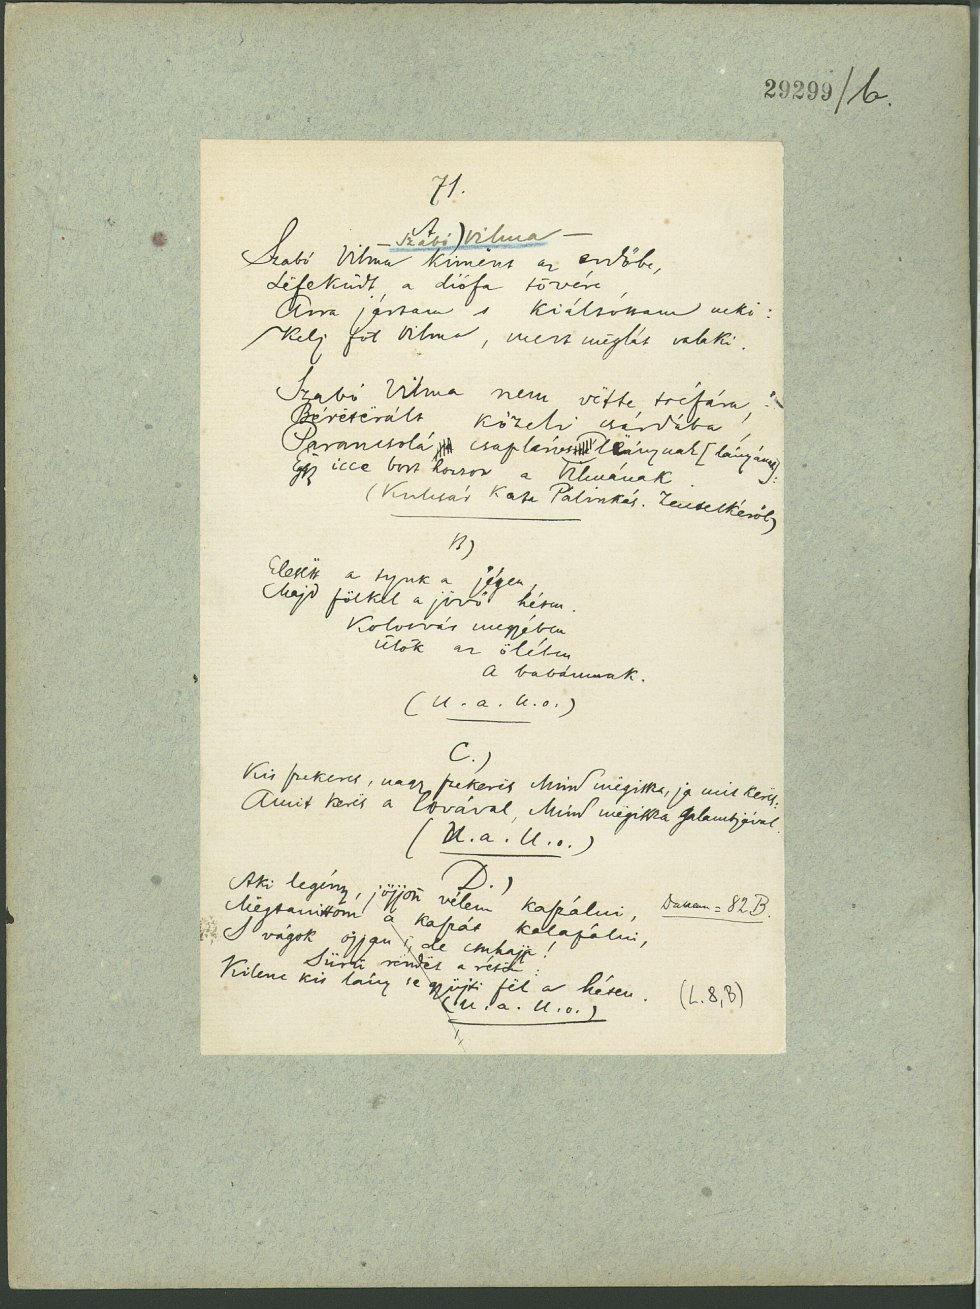 29299/b.
71.
A)
Szabó Vilma —
Szabó Vilma kimënt az erdőbe,
Lefeküdt a diófa tövére
Arra jártam s kiáltottam neki:
Kelj föl Vilma, mert mëglát valaki.
Szabó Vilma nem vëtte tréfára,
Béretërált közeli csárdába,
Parancsolá csaplárosi lëánynak [lányának]:
Ëgy icce bort hozzon a Vilmának
(Kulcsár Kata Pálinkás. Zentelkéről)
B)
Elesëtt a tyuk a jégen,
Majd fölkel a jövő héten.
Kolozsvár megyében
Ülök az ölében
A babámnak.
(U. a. U. o.)
C.)
Kis szekeres, nagy szekeres Mind mëgissza, ja mit keres.
Amit kerës a lovával, Mind mëgissza galambjával.
(U. a. U. o.)
D.)
Aki legény, jöjjön vélem kapálni,
Mëgtanittom a kapát kalapálni,
S vágok ojjan, de csuhajja!
Sürü rëndët a réten:
Kilenc kis lány se gyüjti fël a héten.
(U. a. U. o.)
Dallam = 82 B.
(L. 8, B)